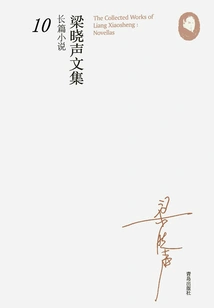 The Collected Works of
Liang Xiaosheng :
Novellas
梁晓声文集
长篇小说
10
梁晓声
青岛出版社